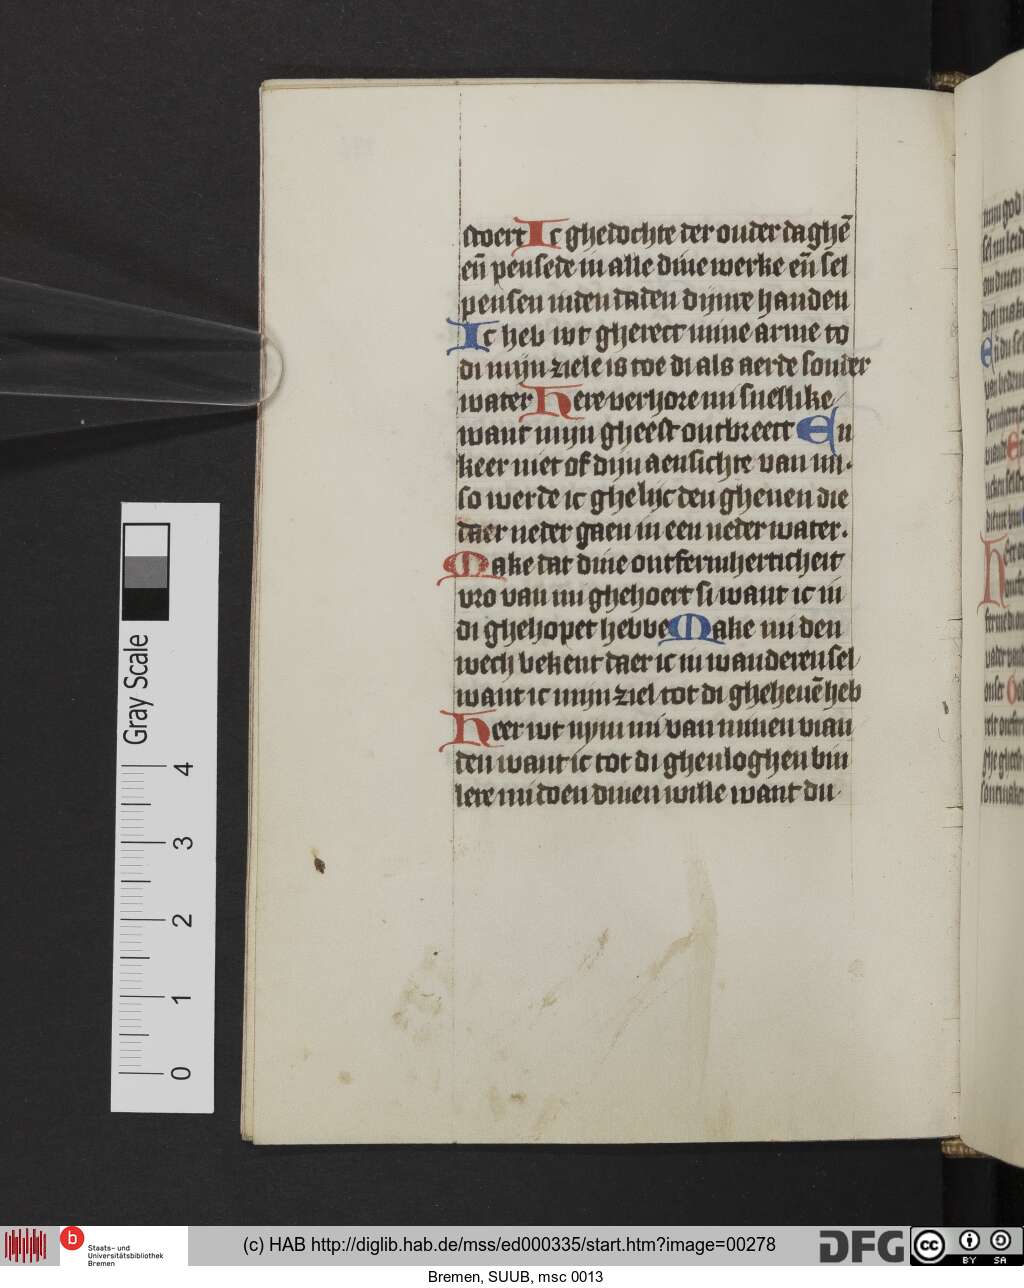 stoert Ic ghedochte der ouder daghē
eñ pensede in alle dine werke eñ sel
pensen inden daden dijnre handen
Ic heb wt gherect mine arme to
di mijn ziele is toe di als aerde sonder
water Here verhore mi snellike
want mijn gheest ontbreect En
keer niet of dijn aensichte van mi.
so werde ic ghelijc den ghenen die
daer neder gaen in een neder water.
Make dat dine ontfermherticheit
vro van mi ghehoert si want ic in
di ghehopet hebbe Make mi den
wech bekent daer ic in wanderen sel
want ic mijn ziel tot di ghehenē heb
Heer wt nym mi van minen vian
den want ic tot di ghenloghen bin
lere mi doen dinen wille want du
Gray Scale
4
3
2
1
0
b
Staats- und
Universitätsbibliothek
Bremen
(c) HAB http://diglib.hab.de/mss/ed000335/start.htm?image=00278
DFG
cc
BY SA
Bremen, SUUB, msc 0013